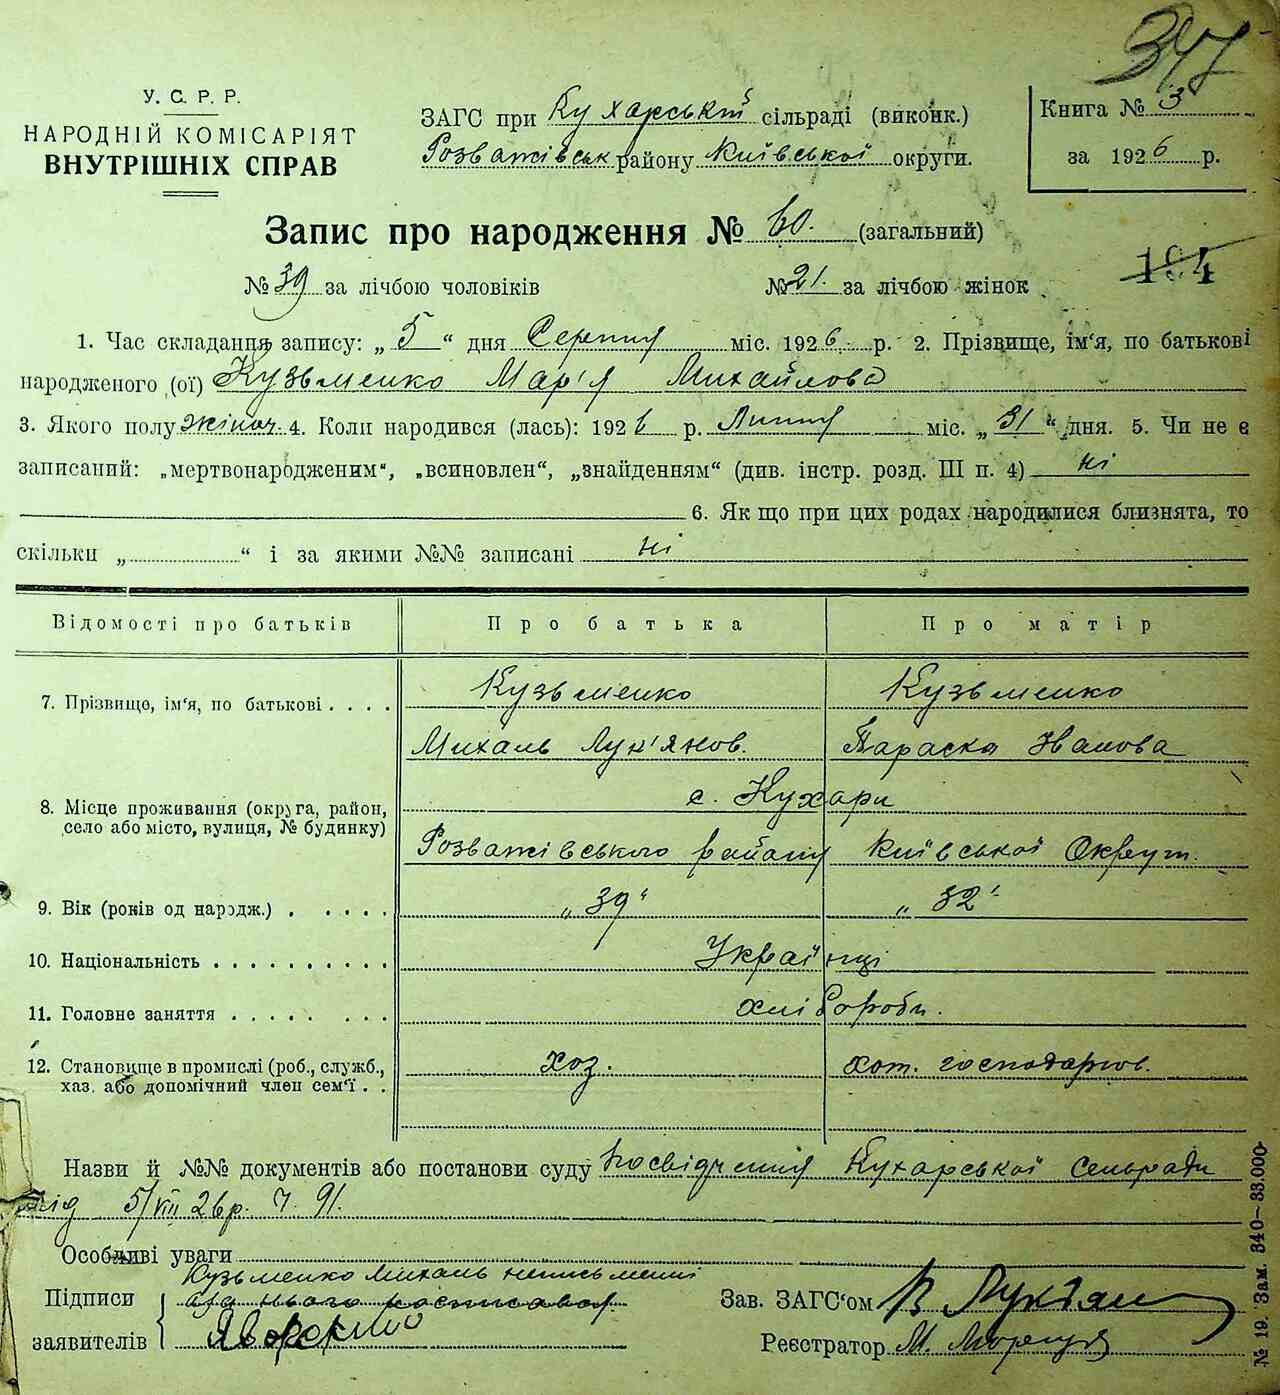 347
У. С. Р. Р.
НАРОДНІЙ КОМІСАРІЯТ
ВНУТРІШНІХ СПРАВ
ЗАГС при Кухарській сільраді (виконк.)
Розважівськ району Київської округи.
Книга № 3
за 1926 р.
Запис про народження № 60. (загальний)
№ 39 за лічбою чоловіків № 21. за лічбою жінок
194
1. Час складання запису: „ 5 “ дня Серпня міс. 1926, р. 2. Прізвище, ім'я, по батькові
народженого (ої) Кузьменко Мар'я Михайлова
3. Якого полу жіноч. 4. Коли народився (лась): 1926 р. Липня міс. „ 31 “ дня. 5. Чи не є
записаний: „мертвонародженим“, „всиновлен“, „знайденням“ (див. інстр. розд. III п. 4) ні
6. Як що при цих родах народилися близнята, то
скільки „ “ і за якими №№ записані ні
Відомості про батьків Про батька Про матір
7. Прізвище, ім'я, по батькові . . . . Кузьменко Кузьменко
Михаль Лук'янов. Параска Іванова
8. Місце проживання (округа, район, с. Кухари
село або місто, вулиця, № будинку) Розважівського району Київської Округи.
9. Вік (років од народж.) . . . . . „39“ „32“
10. Національність . . . . . . . . . . Українці
11. Головне заняття . . . . . . . . хлібороби.
12. Становище в промислі (роб., служб., хоз. господарюв.
хаз. або допомічний член сем'ї . .
Назви й №№ документів або постанови суду Посвідчення Кухарської Сельради
від 5/VIII 26р. Ч. 91.
Особливі уваги
Кузьменко Михаль неписьменні
Підписи за нього росписався
заявителів
Зав. ЗАГС'ом В
Реєстратор М.
№ 19. Зам. 340–33.000